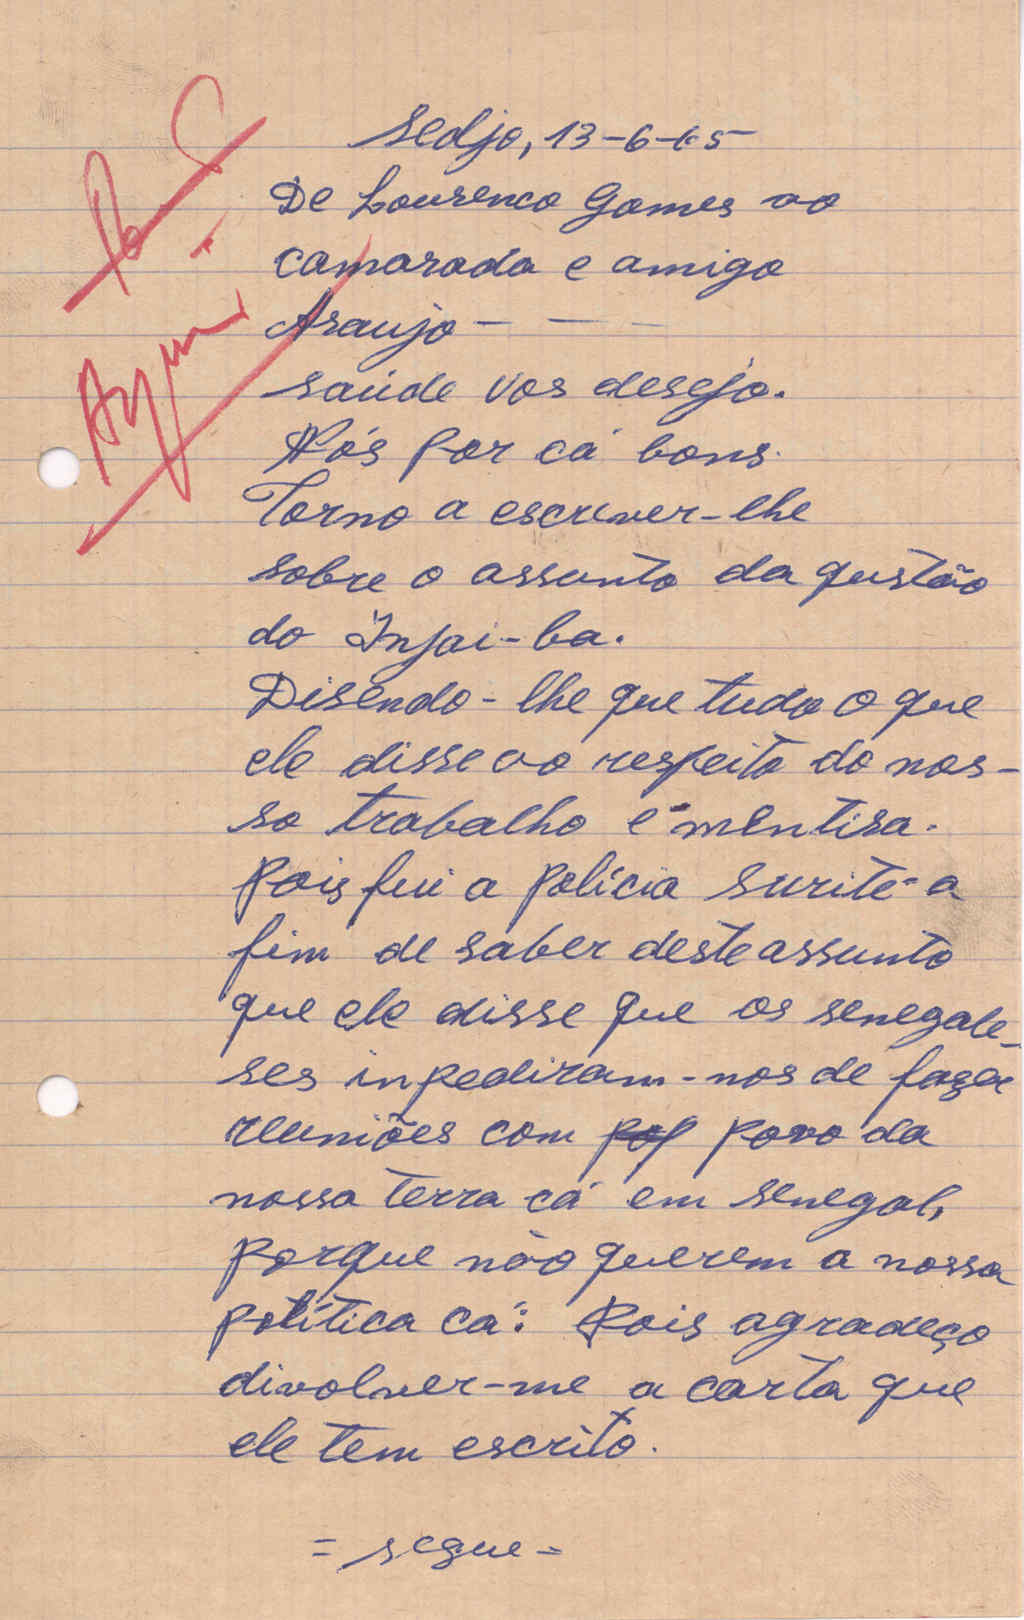 Sedjo, 13-6-65
De Lourenco Gomes ao
camarada e amigo
Araujo - - -
saúde vos desejo.
Nós por cá bons.
Torno a escrever-lhe
sobre o assunto da questão
do Injai-ba.
Disendo-lhe que tudo o que
ele disse ao respeito do nos-
so trabalho é mentira.
Pois fui a polícia a
fim de saber deste assunto
que ele disse que os senegale-
ses inpediram-nos de fazer
reuniões com povo da
nossa terra cá em Senegal,
porque não querem a nossa
política cá: Pois agradeço
divolver-me a carta que
ele tem escrito.
= segue =